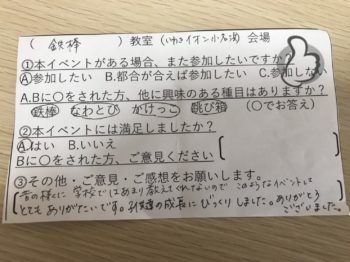 ( 鉄棒 ) 教室 (いわきイオン小名浜) 会場
①本イベントがある場合、また参加したいですか?
Ⓐ参加したい B.都合が合えば参加したい C.参加しない
A.Bに〇をされた方、他に興味のある種目はありますか?
鉄棒 なわとび かけっこ 跳び箱 (〇でお答え)
②本イベントには満足しましたか?
Ⓐはい B.いいえ
Bに〇をされた方、ご意見ください
③その他・ご意見・ご感想をお願いします。
昔の様に学校ではあまり教えてくれないので このようなイベントは
とてもありがたいです。子供達の成長にびっくりしました。ありがとう
ございました。